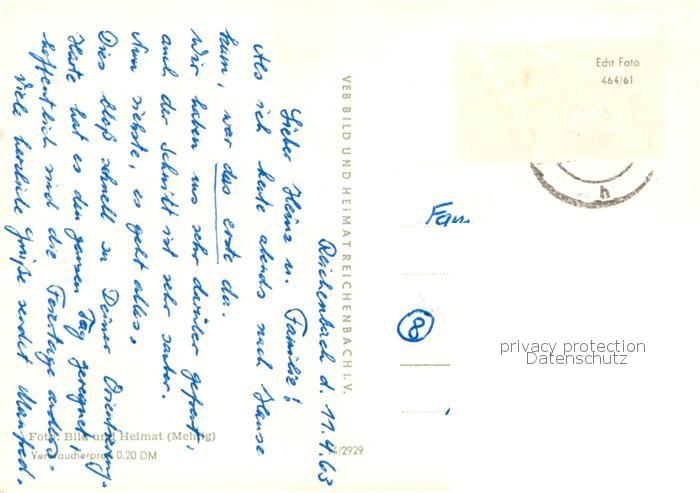 Reichenbach d. 11.4.63
Lieber Heinz u. Familie!
Als ich heute abends nach Hause
kam, war das erste da.
Wir haben uns sehr darüber gefreut,
auch der Schnitt ist sehr sauber.
Nun siehste, es geht alles.
Dies bloß schnell zu Deiner Orientierung.
Heute hat es den ganzen Tag geregnet,
hoffentlich sind die Feiertage anders.
Viele herzliche Grüße sendet Manfred.
VEB BILD UND HEIMAT REICHENBACH i. V.
Echt Foto
464/61
h
Fam
8
privacy protection
Datenschutz
Foto: Bild und Heimat (Mehlig)
Verbraucherpreis 0.20 DM
/2929